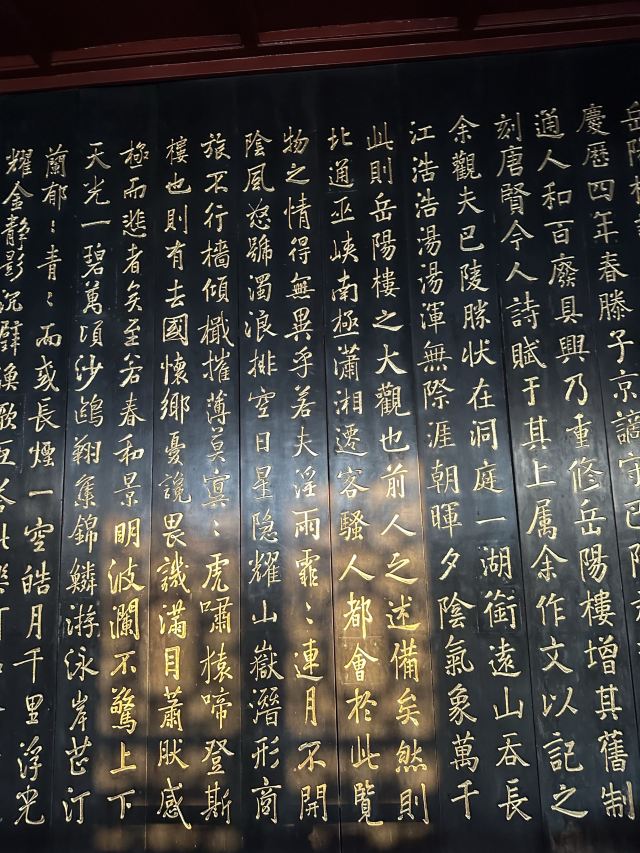 岳陽
慶歷四年春滕子京謫守巴陵
通人和百廢具興乃重修岳陽樓增其舊制
刻唐賢今人詩賦于其上属余作文以記之
余觀夫巴陵勝狀在洞庭一湖銜遠山吞長
江浩浩湯湯渾無際涯朝暉夕陰氣象萬千
此則岳陽樓之大觀也前人之述備矣然則
北通巫峽南極瀟湘遷客騷人都會於此覽
物之情得無異乎若夫淫雨霏〻連月不開
陰風怒號濁浪排空日星隐耀山嶽潛形商
旅不行檣傾檝摧薄莫冥〻虎嘯猿啼登斯
樓也則有去國懷鄉憂讒畏譏滿目蕭然感
極而悲者矣至若春和景明波瀾不驚上下
天光一碧萬頃沙鷗翔集錦鱗游泳岸芷汀
蘭郁〻青〻而或長煙一空皓月千里浮光
耀金静影沉璧漁歌互荅此樂